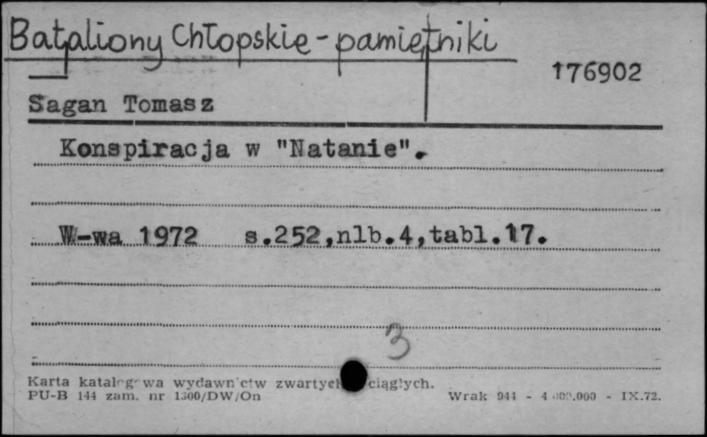 Bataliony Chłopskie - pamiętniki
176902
Sagan Tomasz
Konspiracja w "Natanie".
W-wa 1972 s.252,nlb.4,tabl.17.
3
Karta katalogowa wydawnictw zwartych ciągłych.
PU-B 144 zam. nr 1300/DW/On Wrak 944 - 4.000.000 - IX.72.